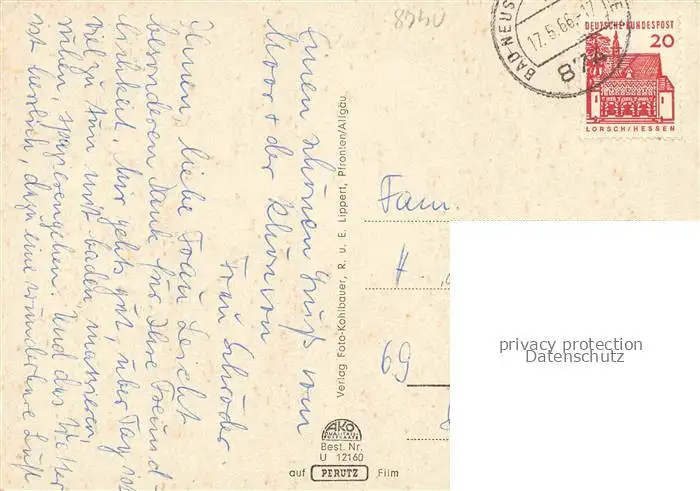 Einen schönen Gruß vom
Moor + der Rhön von
Frau Schröder.
Ihnen, liebe Frau Leicht
besonderen Dank für Ihre Freund-
lichkeit. Mir gehts gut, über Tag ist
viel zu tun mit baden, massieren,
ruhen, spazierengehen. Und das Wetter
ist herrlich, dazu eine wunderbare Luft
8740
BAD NEUS
17.5.66-17
874
DEUTSCHE BUNDESPOST
20
LORSCH/HESSEN
Verlag Foto-Kohlbauer, R. u. E. Lippert, Pfronten/Allgäu
Fam.
H.
69
privacy protection
Datenschutz
AKO
QUALITÄTS-
POSTKARTE
Best. Nr.
U 12160
auf PERUTZ Film